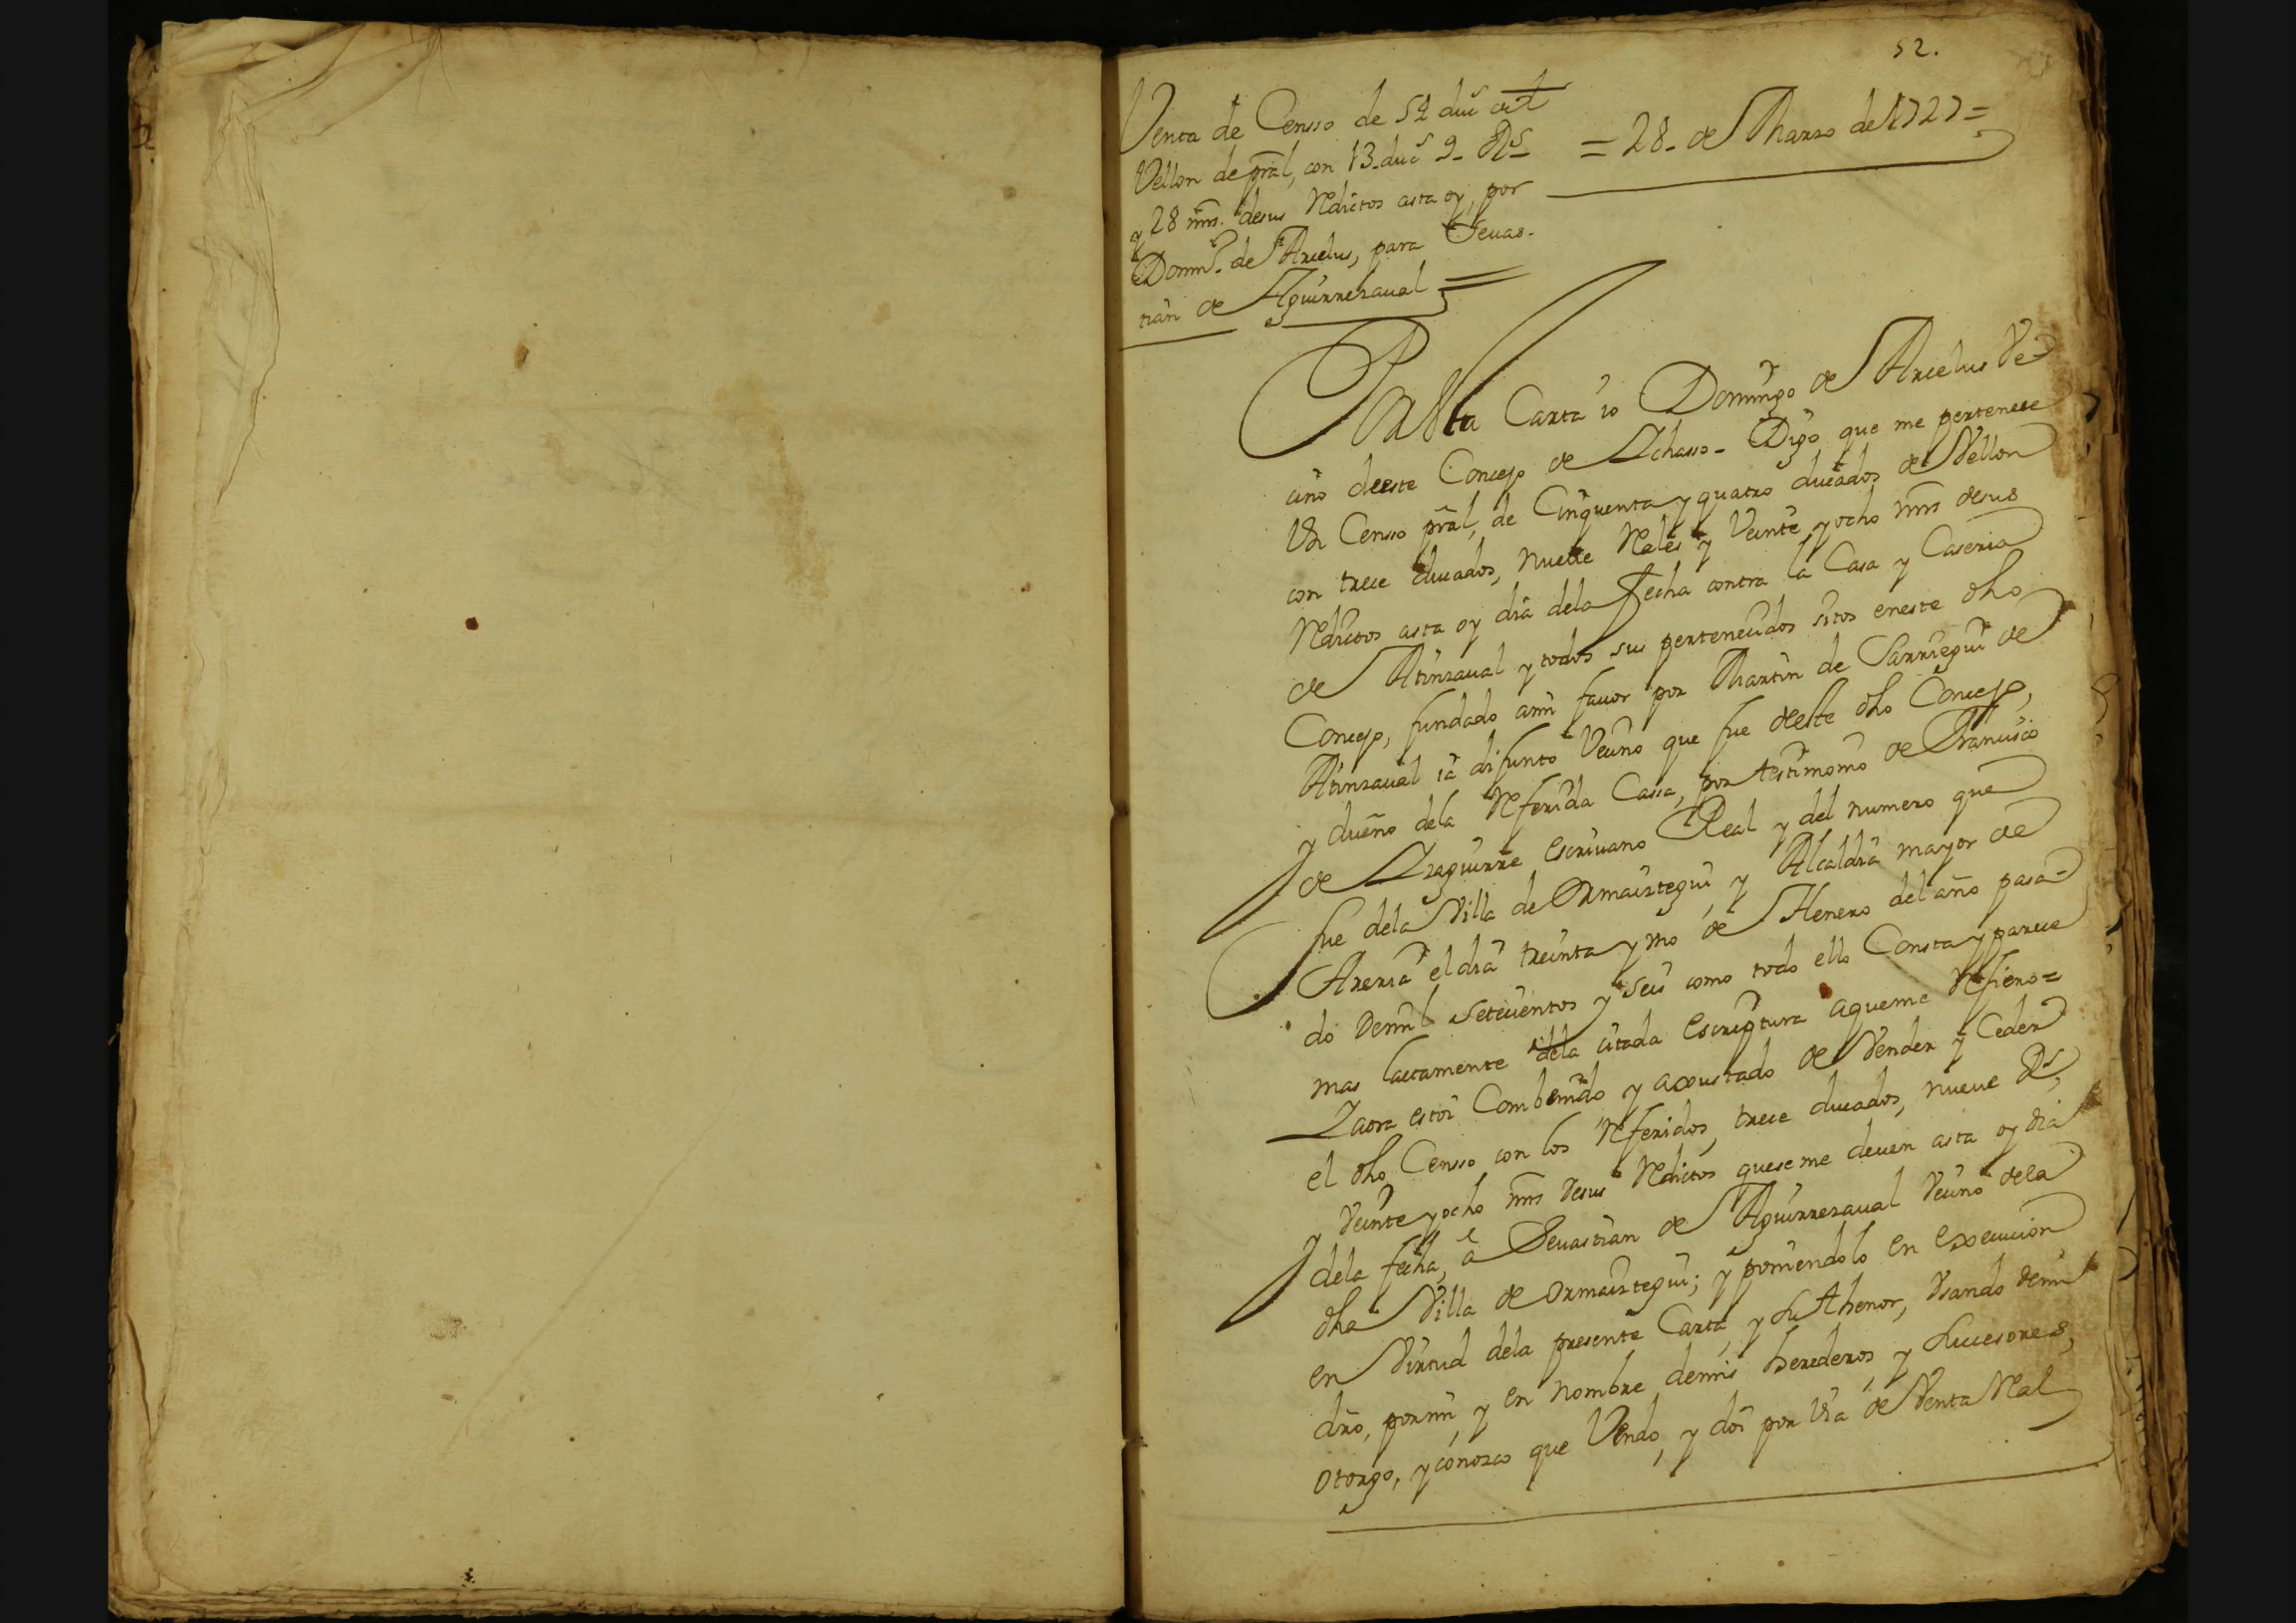 52.
Venta de Censso de 54 duc de
Vellon de pral, con 13 ducs 9 Rs
y 28 mrs. desus Reditos asta oy, por
Domo. de Arcelus, para Sevas-
tian de Aguirrezaval =
= 28 - de Marzo de 1727 =
Por esta Carta io Domingo de Arcelus Ve-
cino deeste Concejo de Ichasso - Digo que me pertenece
Un Censso pral, de Cinquenta y quatro ducados de Vellon
con trece ducados, nueve Rales y Veinte y ocho mrs desus
Reditos asta oy dia dela fecha contra la Casa y Caseria
de Atinzaval y todos sus pertenecidos sitos eneste dho
Concejo, fundado ami favor por Martin de Sarriegui de
Atinzaval ia difunto Vecino que fue deeste dho Concejo,
y dueño dela Referida Cassa, por testimonio de Francisco
de Izaguirre Escrivano Real y del numero que
fue dela Villa de Ormaiztegui y Alcaldia mayor de
Areria el dia treinta y uno de Henero del año pasa-
do demil setecientos y seis como todo ello Consta y parece
mas lactamente dela citada Escriptura aqueme Refiero =
I aora estoi Combenido y axustado de Vender y Ceder
el dho Censso con los Referidos trece ducados, nueve Rs,
y Veinte y ocho mrs desus Reditos que se me deven asta oy dia
dela fecha, a Sevastian de Aguirrezaval Vecino dela
dha Villa de Ormaiztegui; y poniendolo en Execucion
en Virtud dela presente Carta, y su thenor, Usando demi
dro, pormi, y en nombre demis herederos, y Succesores,
otorgo, y conozco que Vendo, y doi por Via de Venta Real